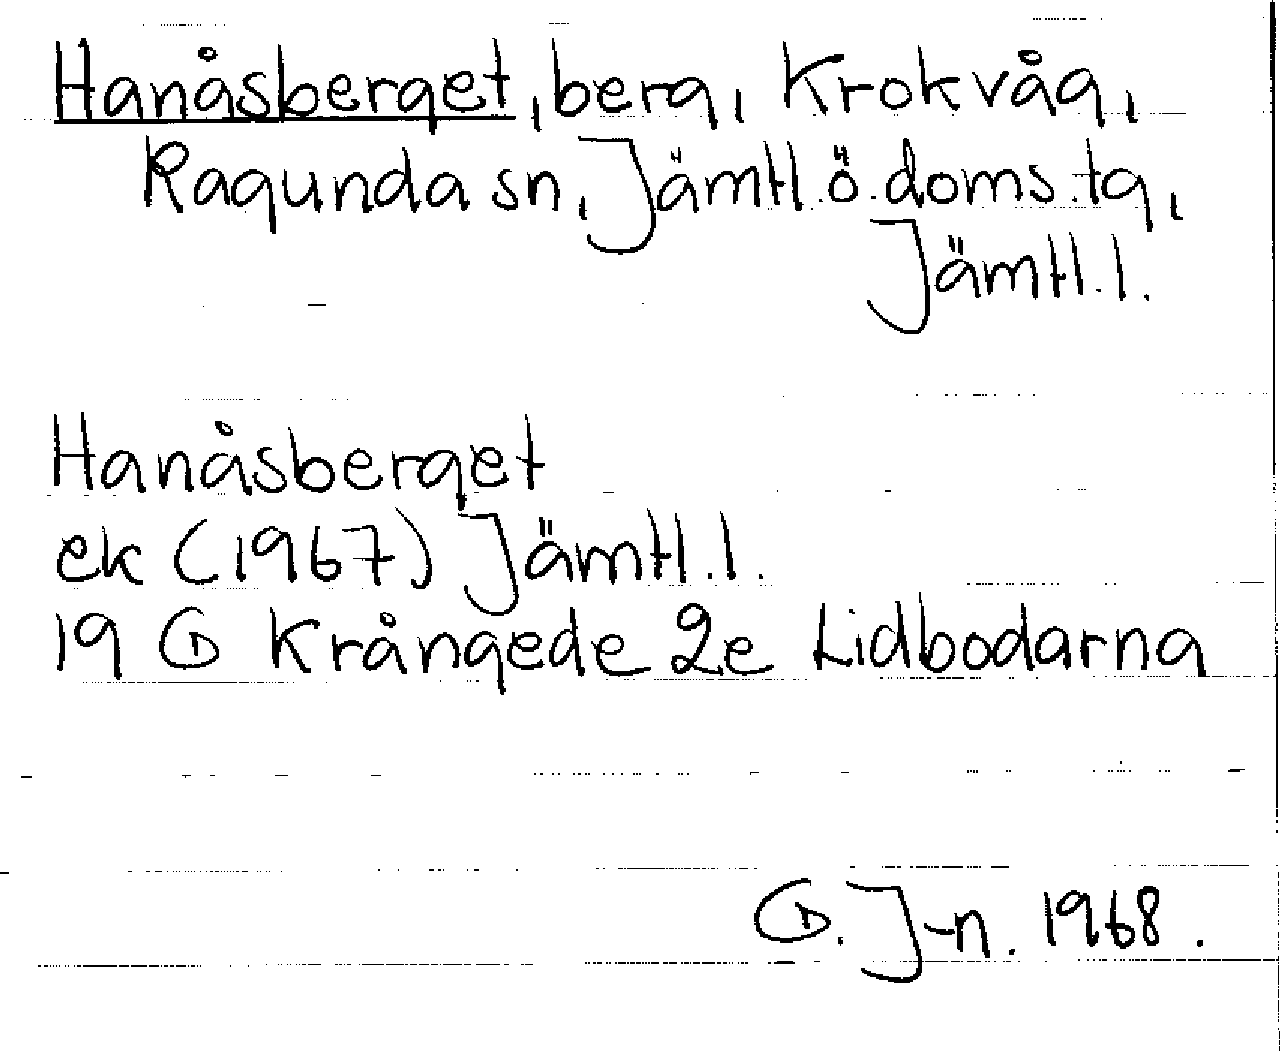 Hanåsberget, berg, Krokvåg,
Ragunda sn, Jämtl. ö. doms. tg,
Jämtl. l.
Hanåsberget
ek (1967) Jämtl. l.
19 G Krångede 2e Lidbodarna
G. J-n. 1968.